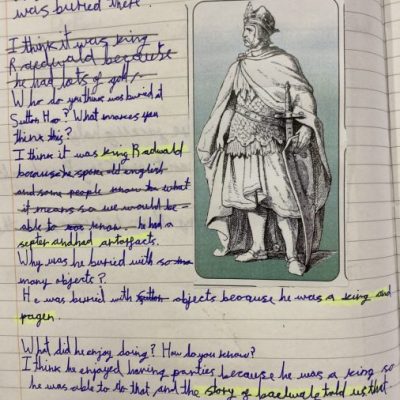 was buried there.
I think it was king
Raedwald because
he had lots of gold
Who do you think was buried at
Sutton Hoo? What makes you
think this?
I think it was king Radwald
because he spoke old english
and some people know to what
it means so we would be
able to know. he had a
septer and had artorfacts.
Why was he buried with so
many objects?
He was buried with objects because he was a king and
pagen.
What did he enjoy doing? How do you know?
I think he enjoyed having parties because he was a king so
he was able to do that, and the story of told us that